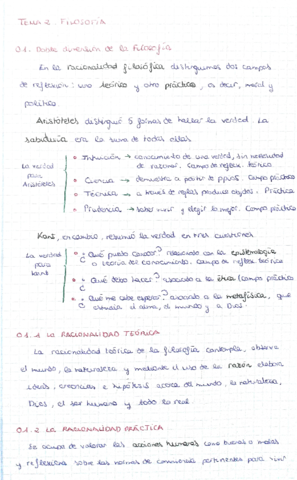 TEMA 2. FILOSOFIA
0.1. Doble dimensión de la Filosofía
En la racionalidad filosófica distinguimos dos campos
de reflexión: uno teórico y otro práctico, es decir, moral y
político.
Aristóteles distinguió 5 formas de hallar la verdad. La
sabiduría era la suma de todas ellas
La verdad para Aristóteles
Intuición → conocimiento de una verdad, sin necesidad
de razonar. Campo de reflex. teórica
Ciencia → demuestra a partir de ppios. Campo práctico
Técnica → a través de reglas produce objetos. Práctica
Prudencia → saber vivir y elegir lo mejor. Campo práctico
Kant, en cambio, resumió la verdad en tres cuestiones.
La verdad para Kant
¿Qué puedo conocer? relacionado con la epistemología
o teoría del conocimiento. Campo de reflex. teórica
¿Qué debo hacer? asociado a la ética (campo práctico
¿Qué me cabe esperar? asociado a la metafísica, que
el alma, el mundo y a Dios.
0.1.1 LA RACIONALIDAD TEÓRICA
La racionalidad teórica de la filosofía contempla, observa
el mundo, la naturaleza y mediante el uso de la razón elabora
ideas, creencias e hipótesis acerca del mundo, la naturaleza,
Dios, el ser humano y todo lo real.
0.1.2 LA RACIONALIDAD PRÁCTICA
Se ocupa de valorar las acciones humanas como buenas o malas
y reflexiona sobre las normas de convivencia pertinentes para vivir